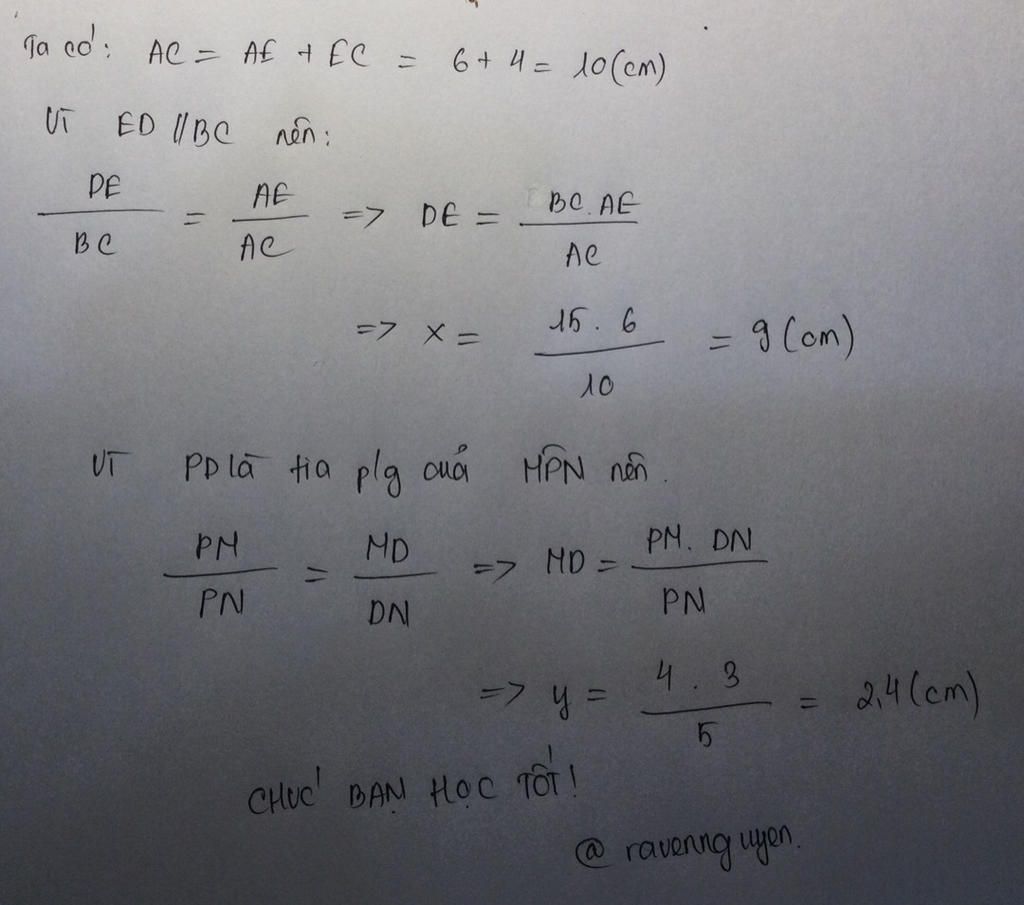 Ta có: AC = AE + EC = 6 + 4 = 10 (cm)
Vì ED // BC nên:
DE/BC = AE/AC => DE = BC.AE/AC
=> x = 15.6/10 = 9 (cm)
Vì PD là tia p/g cuả MP̂N nên.
PM/PN = MD/DN => MD = PM.DN/PN
=> y = 4.3/5 = 2,4 (cm)
CHÚC BẠN HỌC TỐT!
@ ravennguyen.